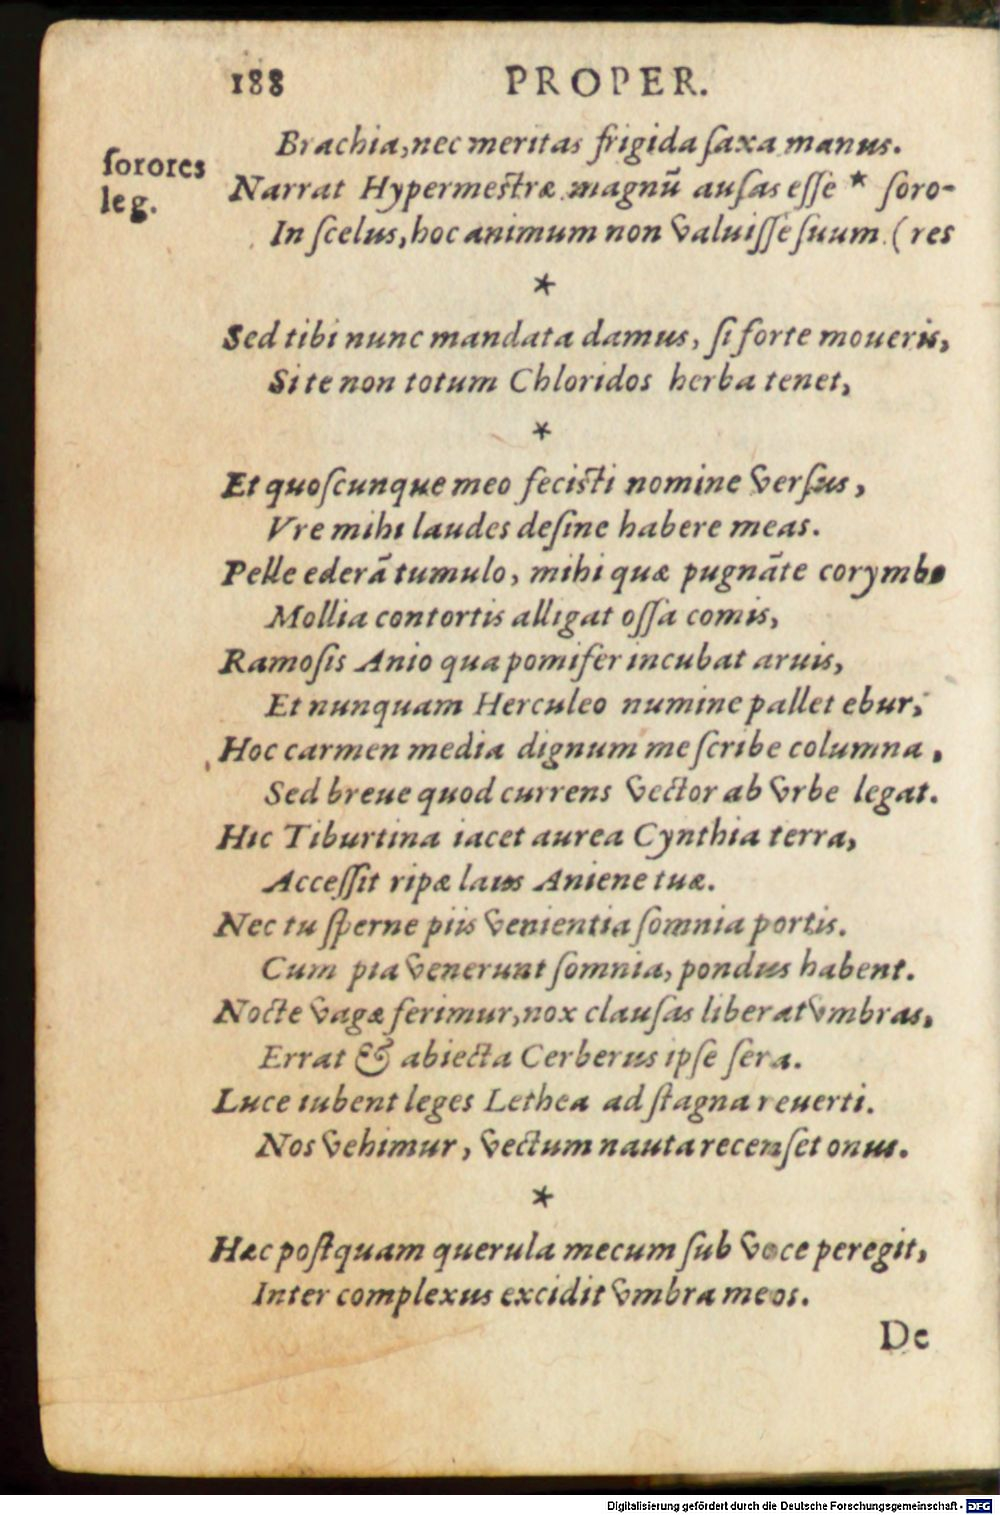 188 PROPER.
Brachia, nec meritas frigida ſaxa manus.
ſorores
leg.
Narrat Hypermeſtræ magnū auſas eſſe * ſoro-
In ſcelus, hoc animum non valuiſſe ſuum. (res
*
Sed tibi nunc mandata damus, ſi forte moueris,
Si te non totum Chloridos herba tenet,
*
Et quoſcunque meo feciſti nomine verſus,
Vre mihi laudes deſine habere meas.
Pelle ederā tumulo, mihi quæ pugnāte corymbo
Mollia contortis alligat oſſa comis,
Ramoſis Anio qua pomifer incubat aruis,
Et nunquam Herculeo numine pallet ebur;
Hoc carmen media dignum me ſcribe columna,
Sed breue quod currens vector ab vrbe legat.
Hic Tiburtina iacet aurea Cynthia terra,
Acceſſit ripæ laus Aniene tuæ.
Nec tu ſperne piis venientia ſomnia portis.
Cum pia venerunt ſomnia, pondus habent.
Nocte vagæ ferimur, nox clauſas liberat vmbras,
Errat & abiecta Cerberus ipſe ſera.
Luce iubent leges Lethea ad ſtagna reuerti.
Nos vehimur, vectum nauta recenſet onus.
*
Hæc poſtquam querula mecum ſub voce peregit,
Inter complexus excidit vmbra meos.
De
Digitalisierung gefördert durch die Deutsche Forschungsgemeinschaft - DFG